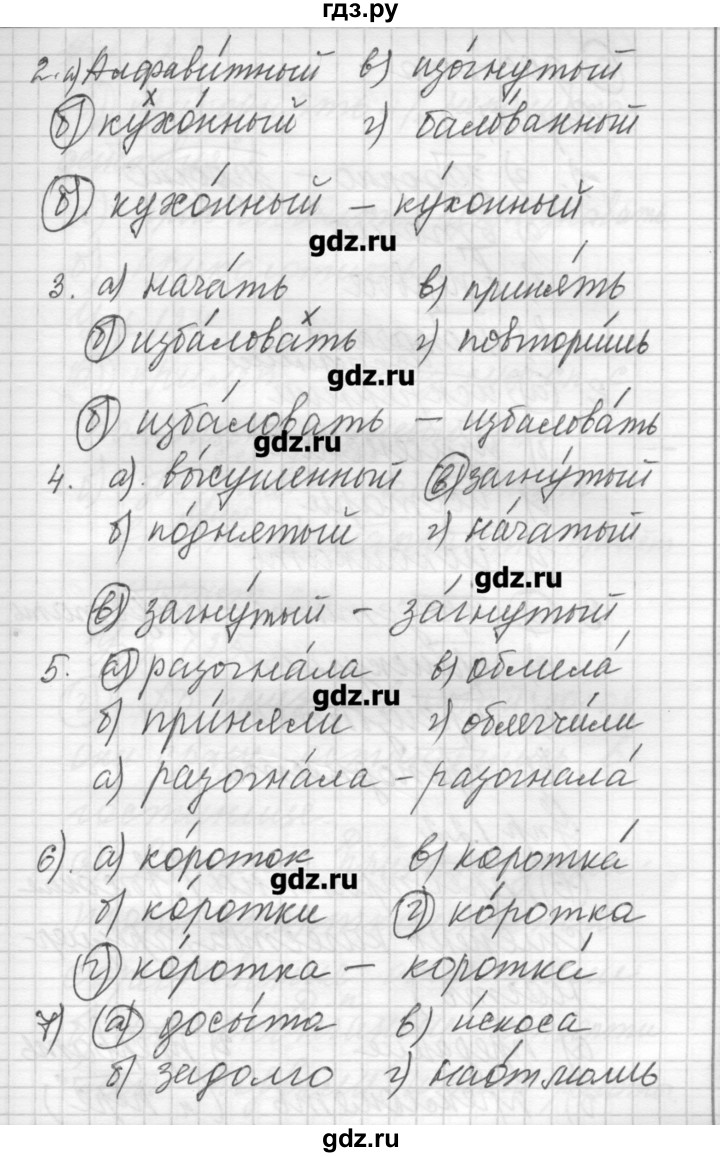 гдз.ру
2. а) Алфави́тный в) изо́гнутый
б) кухо́нный г) бало́ванный
б) кухо́нный – ку́хонный
gdz.ru
3. а) нача́ть в) приня́ть
б) изба́ловать г) повтори́шь
gdz.ru
б) изба́ловать – избалова́ть
gdz.ru
4. а). вы́сушенный в) загну́тый
б) по́днятый г) на́чатый
gdz.ru
в) загну́тый – за́гнутый
5. а) разогна́ла в) облила́
gdz.ru
б) при́няли г) облегчи́ли
а) разогна́ла – разогнала́
6). а) ко́роток в) коротка́
gdz.ru
б) ко́ротки г) ко́ротка
г) ко́ротка – коротка́
7) а) досы́та в) и́скоса
б) задолго г) нао́тмашь
gdz.ru